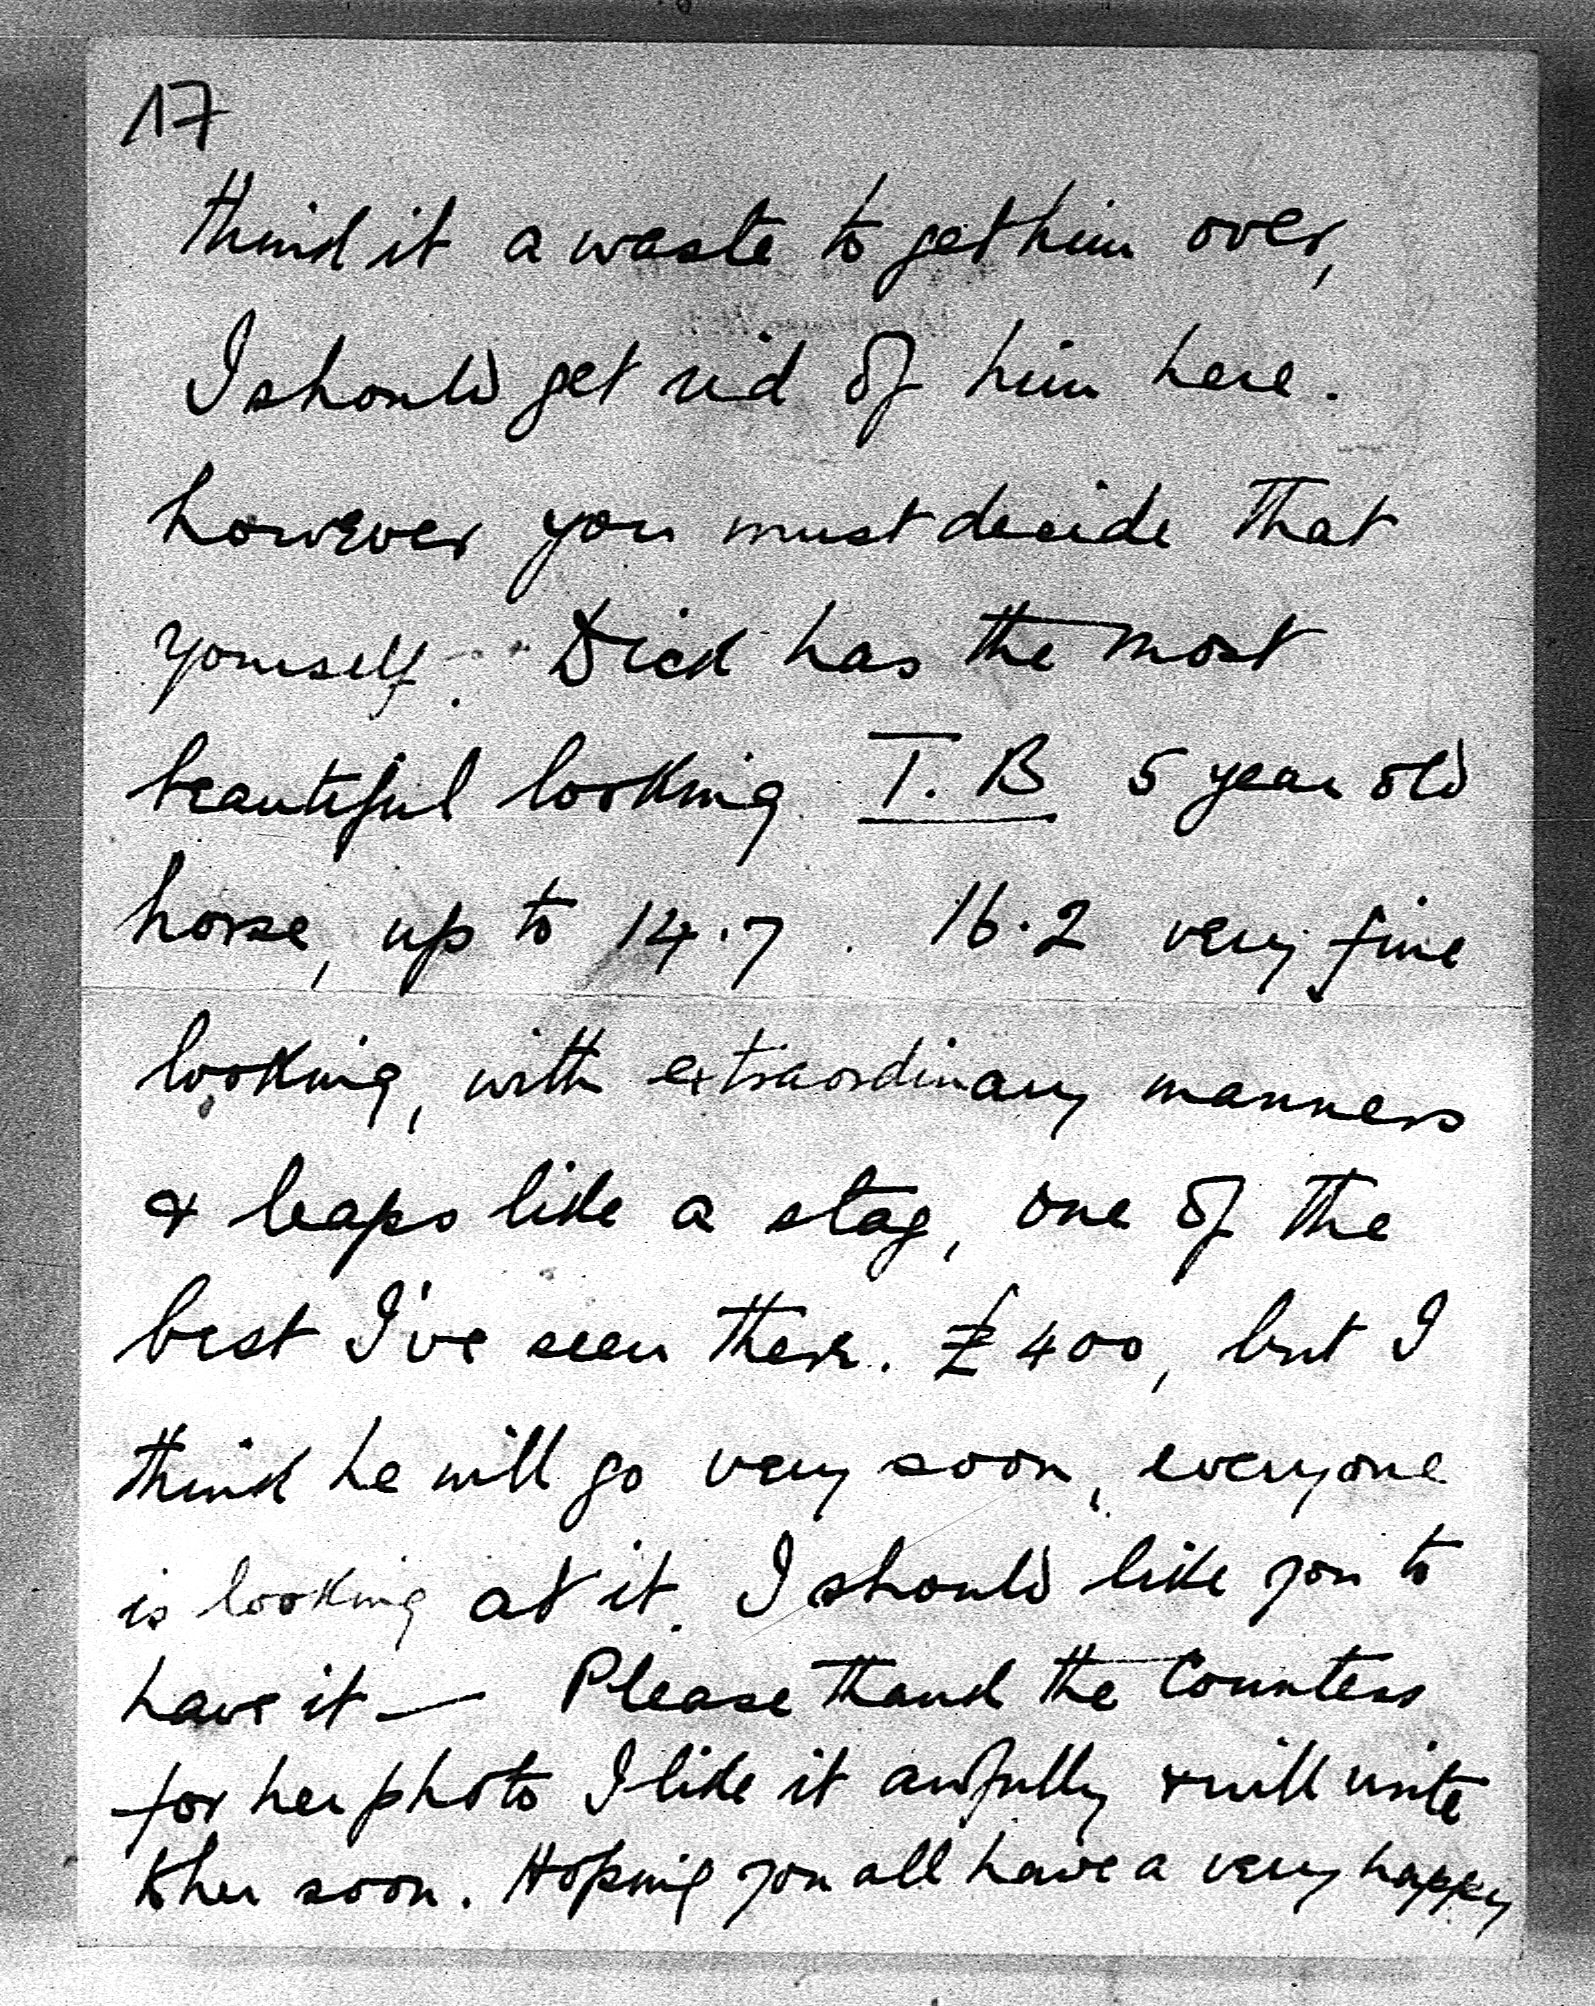 17
think it a waste to get him over,
I should get rid of him here.
however you must decide that
yourself. Dick has the most
beautiful looking T.B 5 year old
horse, up to 14.7. 16.2 very fine
looking, with extraordinary manners
& leaps like a stag, one of the
best I've seen there. £400, but I
think he will go very soon, everyone
is looking at it. I should like you to
have it — Please thank the Countess
for her photo I like it awfully & will write
to her soon. Hoping you all have a very happy